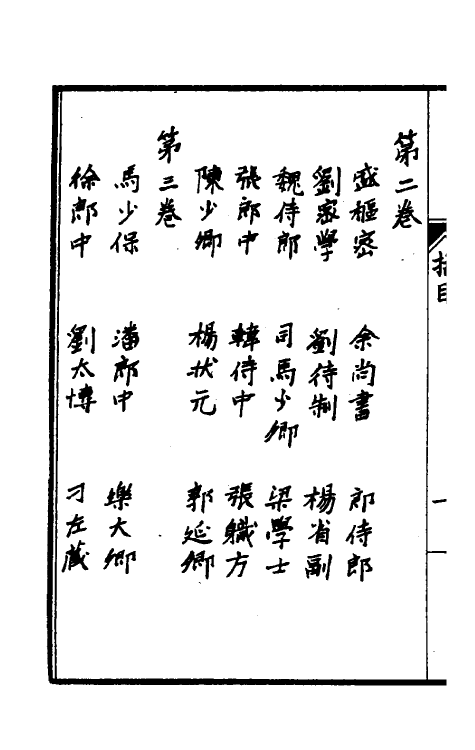 第二卷
盛樞密　余尚書　郎侍郎
劉密學　劉待制　楊省副
魏侍郎　司馬少卿　梁學士
張郎中　韓侍中　張職方
陳少卿　楊狀元　郭延卿
第三卷
馬少保　潘郎中　樂大卿
徐郎中　劉太博　刁左藏